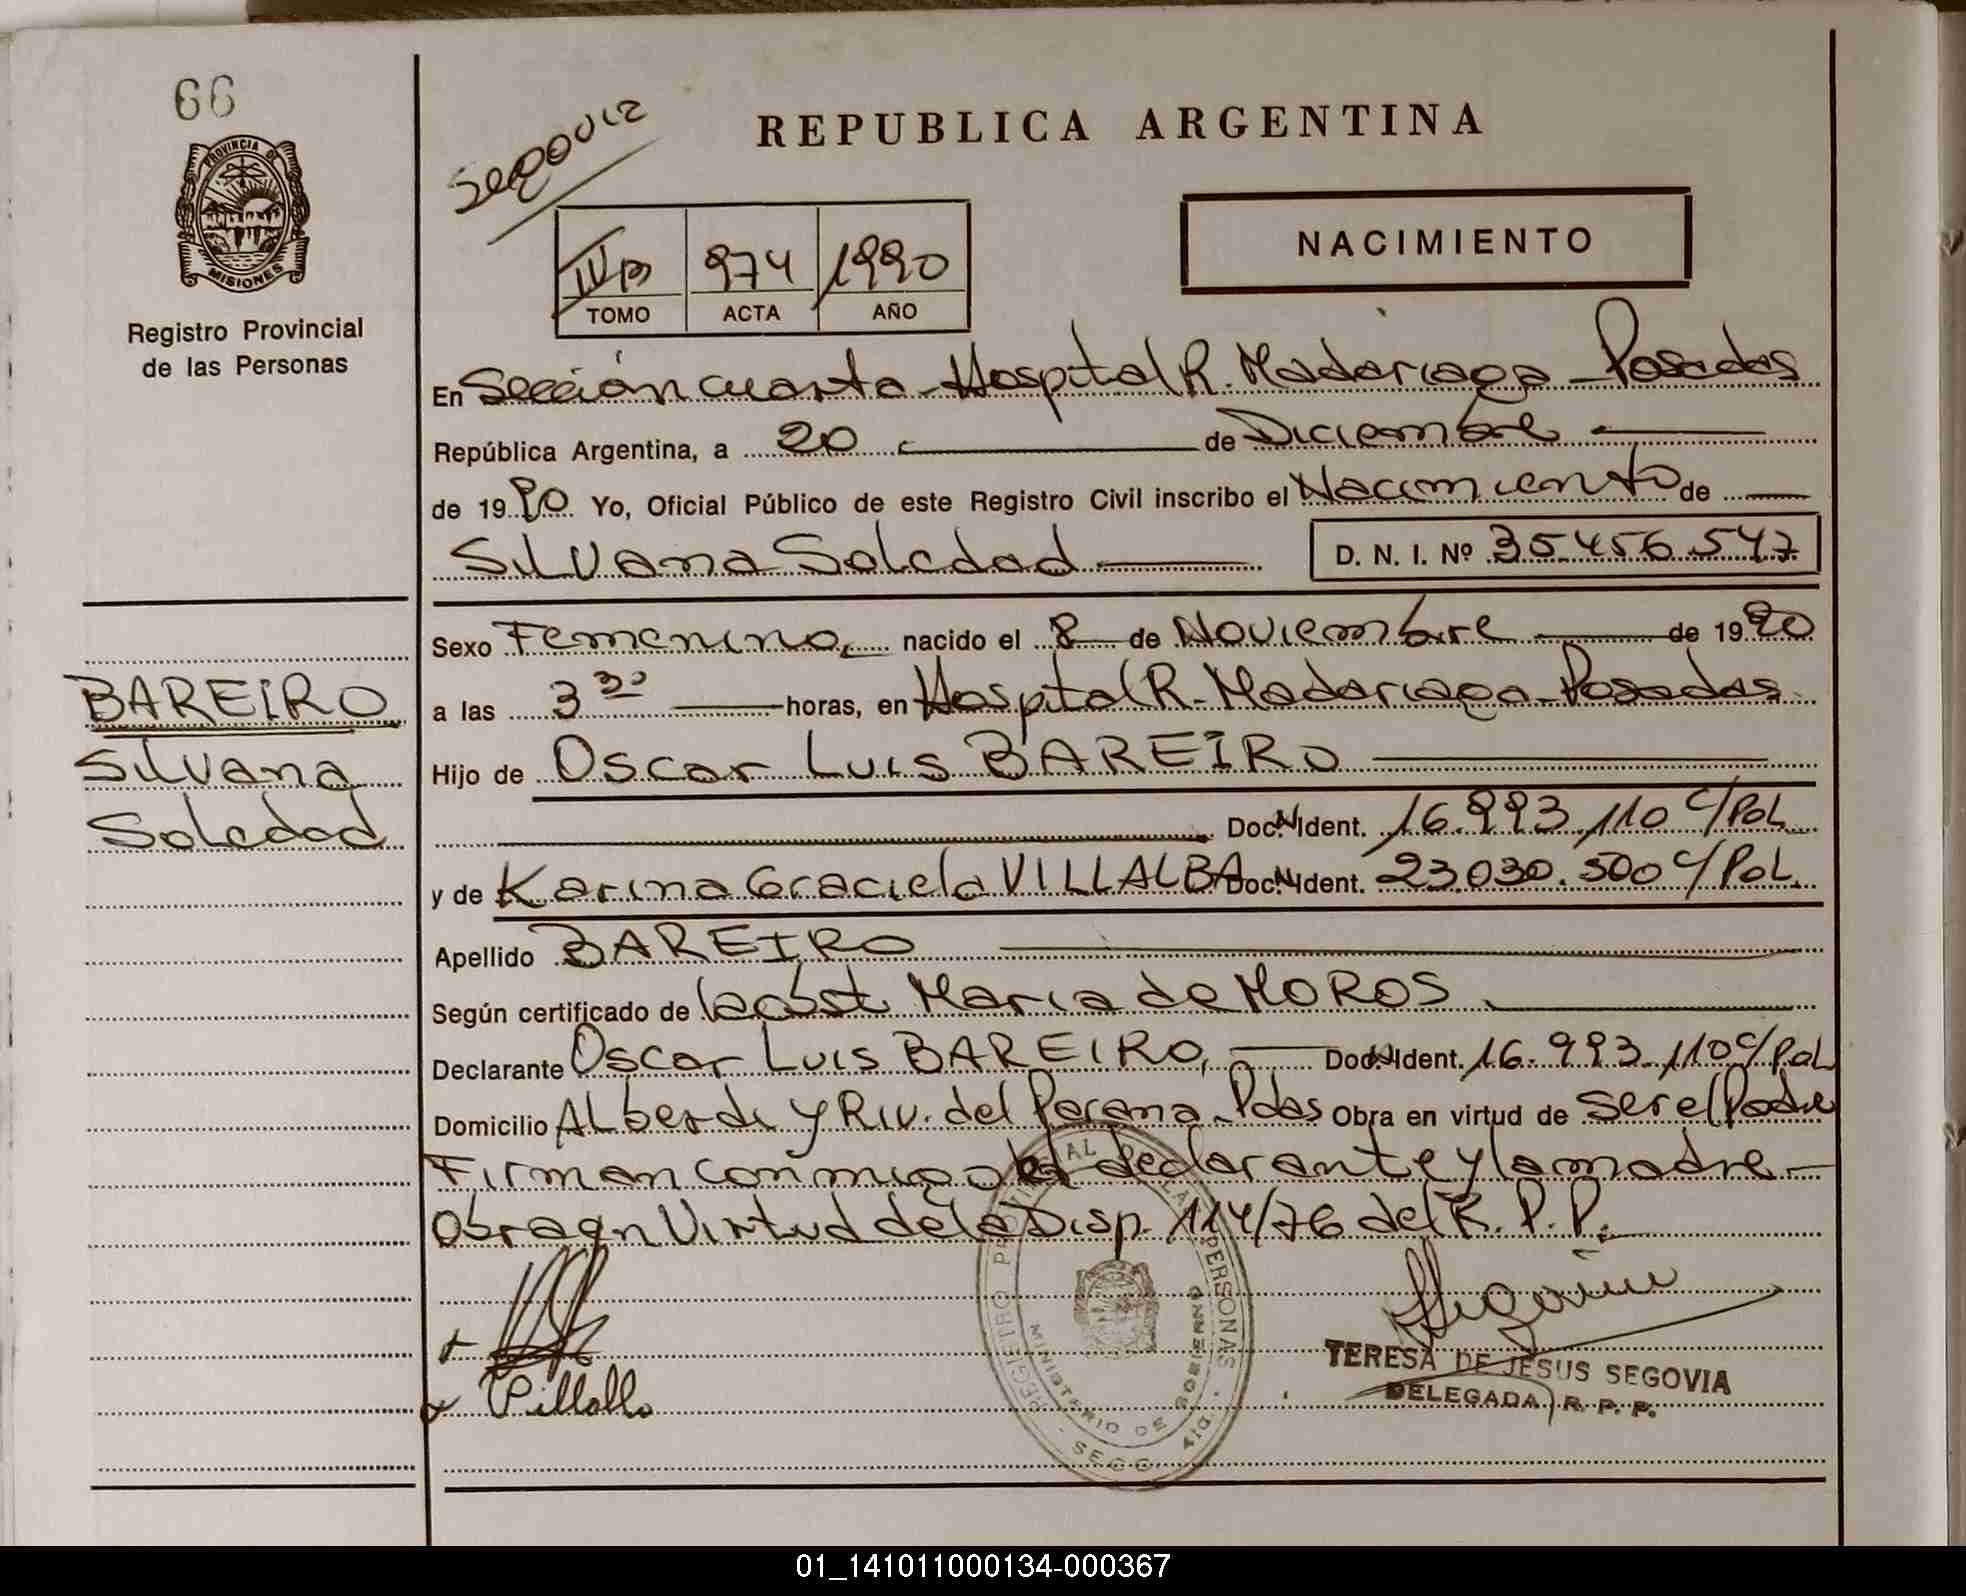 66
PROVINCIA DE
MISIONES
Registro Provincial
de las Personas
Segovia
REPUBLICA ARGENTINA
NACIMIENTO
974 1990
TOMO ACTA AÑO
En Sección cuarta - Hospital R. Madariaga - Posadas
República Argentina, a 20 de Diciembre
de 1990 Yo, Oficial Público de este Registro Civil inscribo el Nacimiento de
Silvana Soledad D. N. I. Nº 35.456.547
Sexo Femenino, nacido el 8 de Noviembre de 1990
a las 3 30 horas, en Hospital R. Madariaga - Posadas
Hijo de Oscar Luis BAREIRO
Doc. N. Ident. 16.993.110 C/Pol
y de Karina Graciela VILLALBA Doc. N. Ident. 23.030.500 C/Pol.
Apellido BAREIRO
Según certificado de la obst. Maria de MOROS
Declarante Oscar Luis BAREIRO, Doc. N. Ident. 16.993.110 C/Pol
Domicilio Alberdi y Riv. del Parana - Pdas Obra en virtud de ser el Padre
Firman conmigo el declarante y la madre -
Obra en Virtud de la Disp. 114/76 del R. P. P.
BAREIRO
Silvana
Soledad
REGISTRO PROVINCIAL DE LAS PERSONAS
MINISTERIO DE GOBIERNO
TERESA DE JESUS SEGOVIA
DELEGADA R. P. P.
01_141011000134-000367